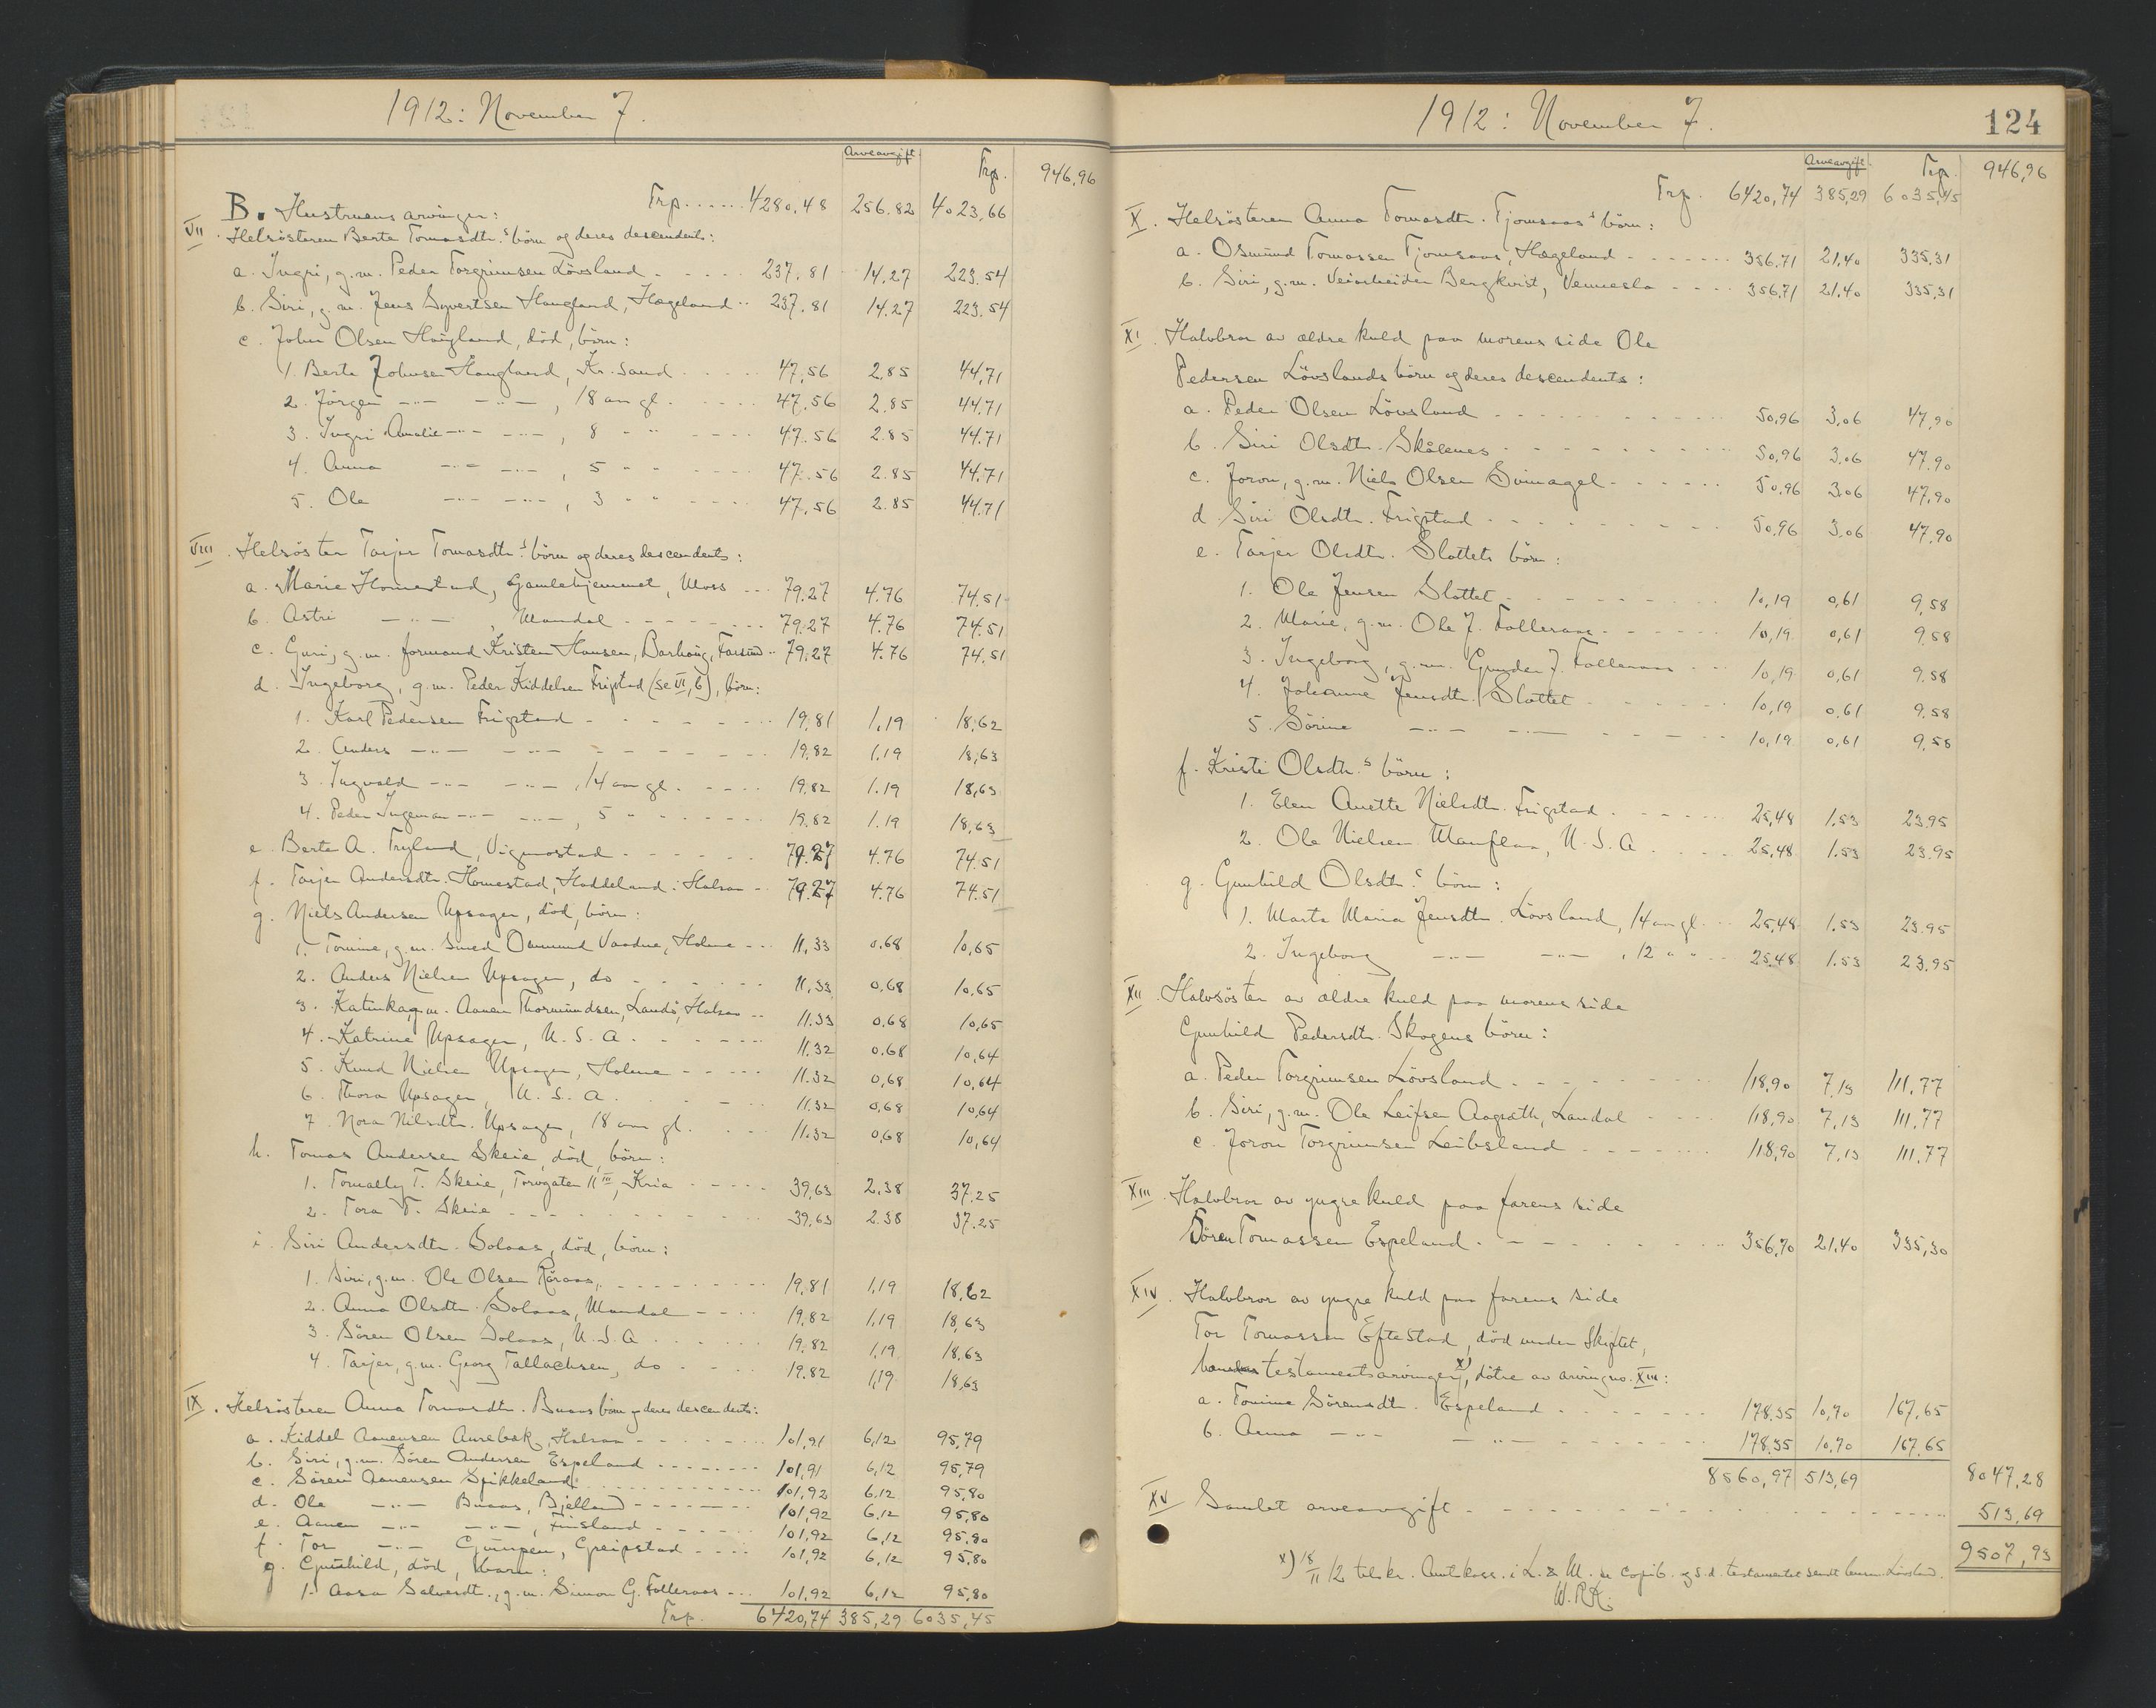 1912: November 7.
Arveavgift Trp. 946,96
B. Hustruens arvinger: Trp. 4280,48 256.82 4023,66
VII. Helsösteren Berte Tomasdtr.s börn og deres descendents:
a. Ingri, g.m. Peder Torgrimsen Lövsland 237.81 14.27 223.54
b. Siri, g.m. Jens Syvertsen Haugland, Hægeland 237.81 14.27 223.54
c. John Olsen Haugland, död, börn:
1. Berte Johnsen Haugland, Kr.sand 47,56 2.85 44,71
2. Jörgen —"— —"—, 18 aar gl. 47,56 2.85 44.71
3. Ingri Amalie —"— —"—, 8 " " 47.56 2.85 44.71
4. Anna —"— —"—, 5 " " 47.56 2.85 44.71
5. Ole —"— —"—, 3 " " 47,56 2.85 44.71
VIII. Helsöster Tarjer Tomasdtr.s börn og deres descendents:
a. Marie Homestad, Gamlehjemmet, Moss 79.27 4.76 74.51
b. Astri —"—, Mandal 79.27 4.76 74.51
c. Guri, g.m. formand Kristen Hansen, Barhaug, Farsund 79.27 4.76 74,51
d. Ingeborg, g.m. Peder Kiddelsen Frigstad (se VI, b), börn:
1. Karl Pedersen Frigstad 19,81 1,19 18,62
2. Anders —"— —"— 19,82 1.19 18,63
3. Ingvald —"— —"—, 14 aar gl. 19,82 1.19 18,63
4. Peder Ingeman —"— —"—, 5 " 19.82 1.19 18,63
e. Berte A. Tryland, Vigmostad 79.27 4.76 74.51
f. Tarjer Andersdtr. Homestad, Haddeland i Halsaa 79.27 4.76 74.51
g. Niels Andersen Upsager, död, börn:
1. Tomine, g.m. Smed Osmund Vaadne, Holme 11,33 0.68 10,65
2. Anders Nielsen Upsager, do 11,33 0,68 10,65
3. Katinka, g.m. Aanen Thormundsen, Landö, Halsaa 11.33 0,68 10,65
4. Katrine Upsager, U.S.A. 11.32 0.68 10,64
5. Knud Nielsen Upsager, Holme 11.32 0,68 10,64
6. Thora Upsager, U.S.A. 11.32 0,68 10,64
7. Nora Nilsdtr. Upsager, 18 aar gl. 11.32 0,68 10,64
h. Tomas Andersen Skeie, död, börn:
1. Tomally T. Skeie, Torvgaten 11 III, Kria 39,63 2,38 37.25
2. Tora T. Skeie 39,63 2.38 37.25
i. Siri Andersdtr. Solaas, död, börn:
1. Siri, g.m. Ole Olsen Röraas, 19,81 1,19 18,62
2. Anna Olsdtr. Solaas, Mandal 19,82 1,19 18,63
3. Sören Olsen Solaas, U.S.A. 19,82 1,19 18,63
4. Tarjer, g.m. Georg Tallachsen, do 19.82 1,19 18,63
IX. Helsösteren Anna Tomasdtr. Buaas börn og deres descendents:
a. Kiddel Aanensen Aurebæk, Halsaa 101,91 6,12 95,79
b. Siri, g.m. Sören Andersen Espeland 101,91 6,12 95,79
c. Sören Aanensen Spikkeland 101,92 6.12 95,80
d. Ole —"— Buaas, Bjelland 101,92 6,12 95,80
e. Aanen —"— —"—, Finsland 101,92 6,12 95,80
f. Tor —"— Gumpen, Greipstad 101,92 6,12 95,80
g. Gunhild, död, barn:
1. Aasa Salvesdtr., g.m. Simon G. Folleraas 101,92 6,12 95,80
Trp. 6420,74 385,29 6035,45
1912: November 7. 124
Arveavgift Trp. 946,96
Trp. 6420,74 385,29 6035,45
X. Helsösteren Anna Tomasdtr. Tjomsaas börn:
a. Osmund Tomassen Tjomsaas, Hægeland 356.71 21,40 335,31
b. Siri, g.m. Veiarbeider Bergkvist, Vennesla 356,71 21.40 335,31
XI. Halvbror av ældre kuld paa morens side Ole
Pedersen Lövslands börn og deres descendents:
a. Peder Olsen Lövsland 50,96 3,06 47,90
b. Siri Olsdtr. Skålenes 50,96 3,06 47.90
c. Joron, g.m. Niels Olsen Svinagel 50,96 3,06 47,90
d. Siri Olsdtr. Frigstad 50,96 3,06 47,90
e. Tarjer Olsdtr. Slottets börn:
1. Ole Jensen Slottet 10,19 0,61 9,58
2. Marie, g.m. Ole J. Folleraas 10,19 0,61 9,58
3. Ingeborg, g.m. Gunder J. Folleraas 10,19 0,61 9.58
4. Johanne Jensdtr. Slottet 10,19 0,61 9,58
5. Sörine —"— —"— 10,19 0,61 9,58
f. Kristi Olsdtr.s börn:
1. Elen Anette Nielsdtr. Frigstad 25,48 1.53 23.95
2. Ole Nielsen Manflaa, U.S.A 25,48 1.53 23.95
g. Gunhild Olsdtr.s börn:
1. Marte Maria Jensdtr. Lövsland, 14 aar gl. 25,48 1.53 23.95
2. Ingeborg —"— —"—, 12 " " 25,48 1.53 23.95
XII. Halvsöster av ældre kuld paa morens side
Gunhild Pedersdtr. Skogens börn:
a. Peder Torgrimsen Lövsland 118,90 7,13 111,77
b. Siri, g.m. Ole Leifsen Aagedth, Laudal 118,90 7,13 111,77
c. Joron Torgrimsen Leibsland 118,90 7,13 111,77
XIII. Halvbror av yngre kuld paa farens side
Sören Tomassen Espeland 356,70 21,40 335,30
XIV. Halvbror av yngre kuld paa farens side
Tor Tomassen Eftestad, död under skiftet,
testamentsarvinger x), dötre av arving no. XIII:
a. Tomine Sörensdtr. Espeland 178.35 10,70 167,65
b. Anna —"— —"— 178.35 10,70 167,65
8560,97 513,69 8047,28
XV Samlet arveavgift 513,69
9507,93
x) 18/11 12 tilskr. Amtkass. i L. & M. se copib. og s.d. testamentet sendt lensm. Lövsland.
W.RK.